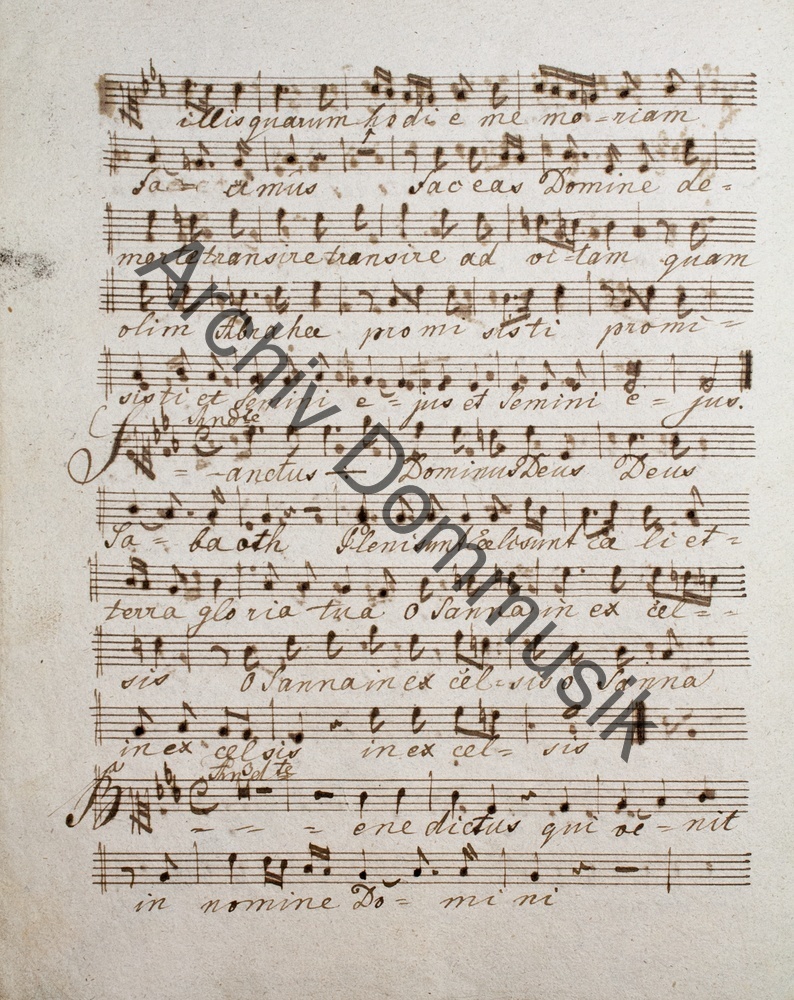 illis quarum hodie me mo = riam
Fa = amus faceas Domine de =
morte transire transire ad vi = tam quam
olim Abrahee promi sisti promi =
sisti et Semini e = jus et Semini e = jus.
Andte
S = anctus — Dominus Deus Deus
Sa = ba oth Pleni sunt cæli sunt cæ li et =
terra glo ria tua O Sanna in ex cel = =
sis O Sanna in ex cel = sis o Sanna
in ex cel sis in ex cel = sis
Andte
B = = = enedictus qui ve = nit
in nomine Do = mi ni
Archiv Dommusik